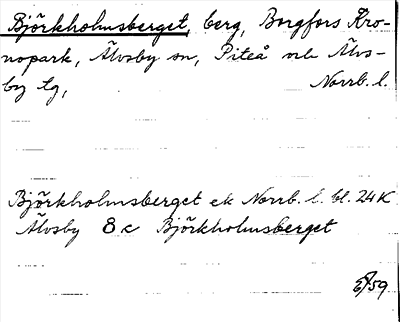 Björkholmsberget, berg, Borgfors Kro-
nopark, Älvsby sn, Piteå och Älvs-
by tg, Norrb. l.
Björkholmsberget ek Norrb. l. bl. 24K
Älvsby 8 c Björkholmsberget
/59